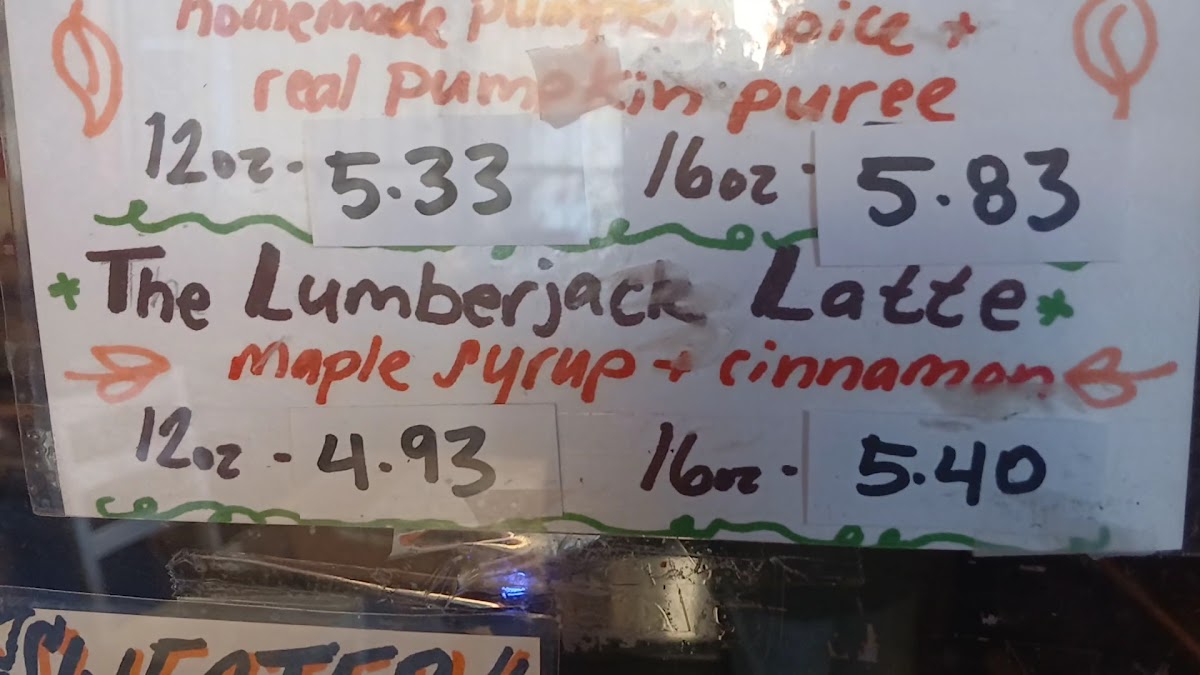 homemade pumpkin spice +
real pumpkin puree
12oz - 5.33 16oz - 5.83
The Lumberjack Latte
maple syrup + cinnamon
12oz - 4.93 16oz - 5.40